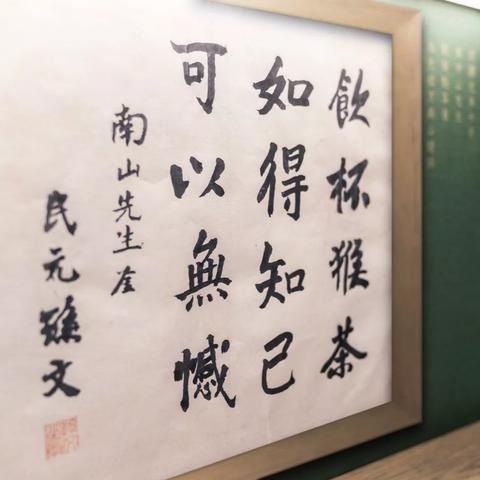 飲杯猴茶
如得知己
可以無憾
南山先生鉴
民元孫文